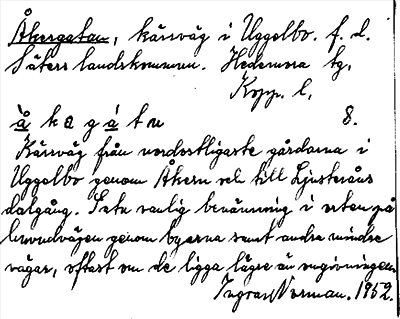 Åkersgatan, körväg i Uggelbo. f. d.
Säters landskommun. Hedemora tg.
Kopp. l.
å k e g á t u 8.
Körväg från nordostligaste gårdarna i
Uggelbo genom Åkern ned till Ljusteråns
dalgång. Gata vanlig benämning i orten på
huvudvägen genom byarna samt andra mindre
vägar, oftast om de ligga lägre än omgivningen.
Ingvar Norman. 1952.